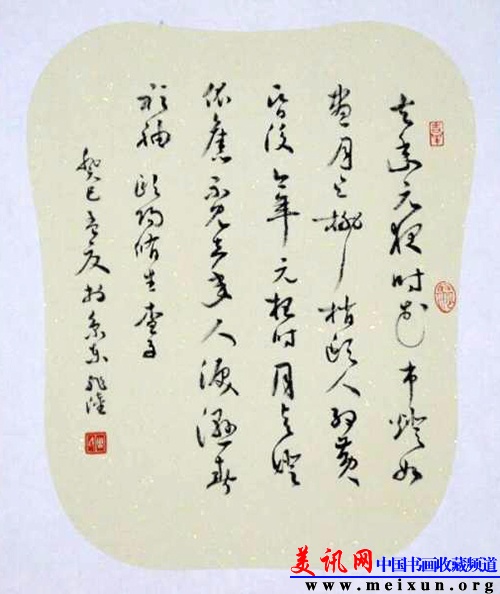 去年元夜时花市燈如
昼月上柳梢头人约黄
昏后今年元夜时月与燈
依舊不见去年人泪湿春
衫袖 欧阳修生查子
癸巳夏於京东
美讯网 中国书画收藏频道
www.meixun.org